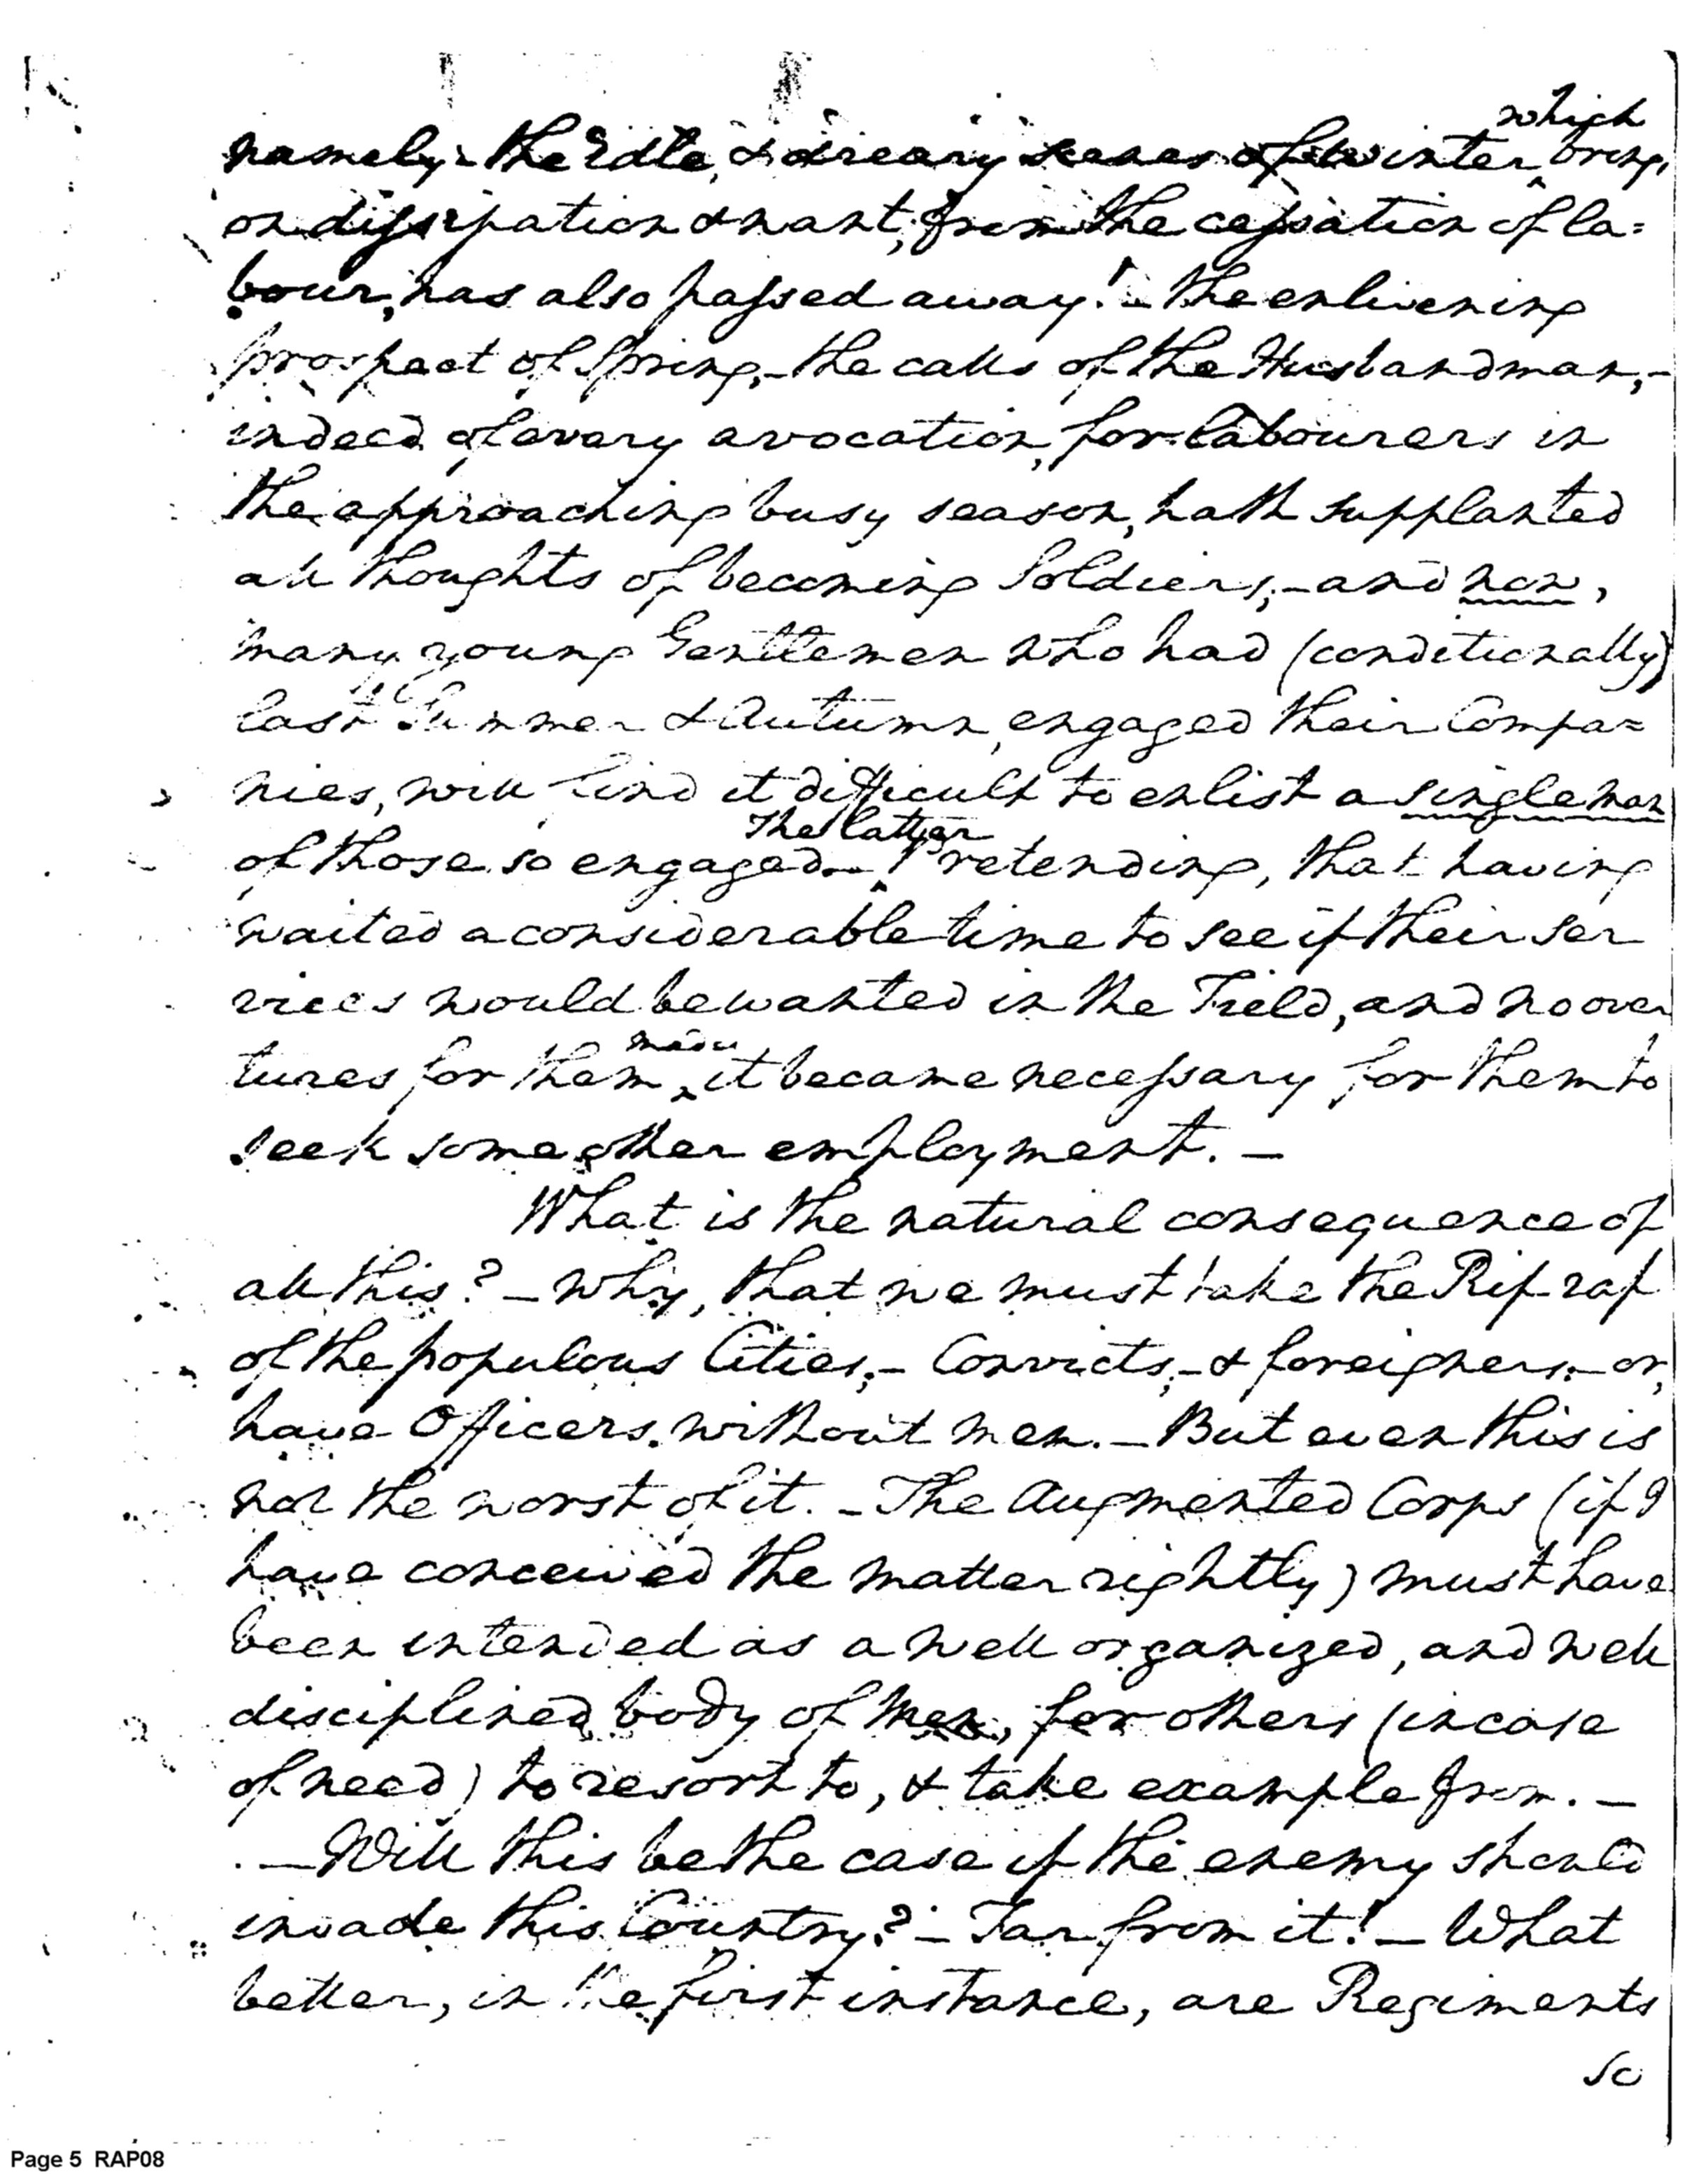 which
namely the Idle, & dreary scenes of winter bring,
on dissipation & want, from the cessation of la=
bour, has also passed away! – the enlivening
prospect of Spring, – the calls of the Husbandman, –
indeed of every avocation, for labourers in
the approaching busy season, hath supplanted
all thoughts of becoming Soldiers; – and now,
many young Gentlemen who had (conditionally)
last Summer & Autumn, engaged their Compa=
nies, will find it difficult to enlist a single man
The latter
of those so engaged. – Pretending, that having
waited a considerable time to see if their ser
vices would be wanted in the Field, and no over
made
tures for them, it became necessary for them to
seek some other employment. –
What is the natural consequence of
all this? – why, that we must take the Rif-raf
of the populous Cities; – Convicts; – & foreigners; – or,
have Officers without men. – But even this is
not the worst of it. – The Augmented Corps (if I
have conceived the matter rightly) must have
been intended as a well organized, and well
disciplined body of Men, for others (in case
of need) to resort to, & take example from. –
– Will this be the case if the enemy should
invade this Country? – Far from it! – What
better, in the first instance, are Regiments
so
Page 5 RAP08